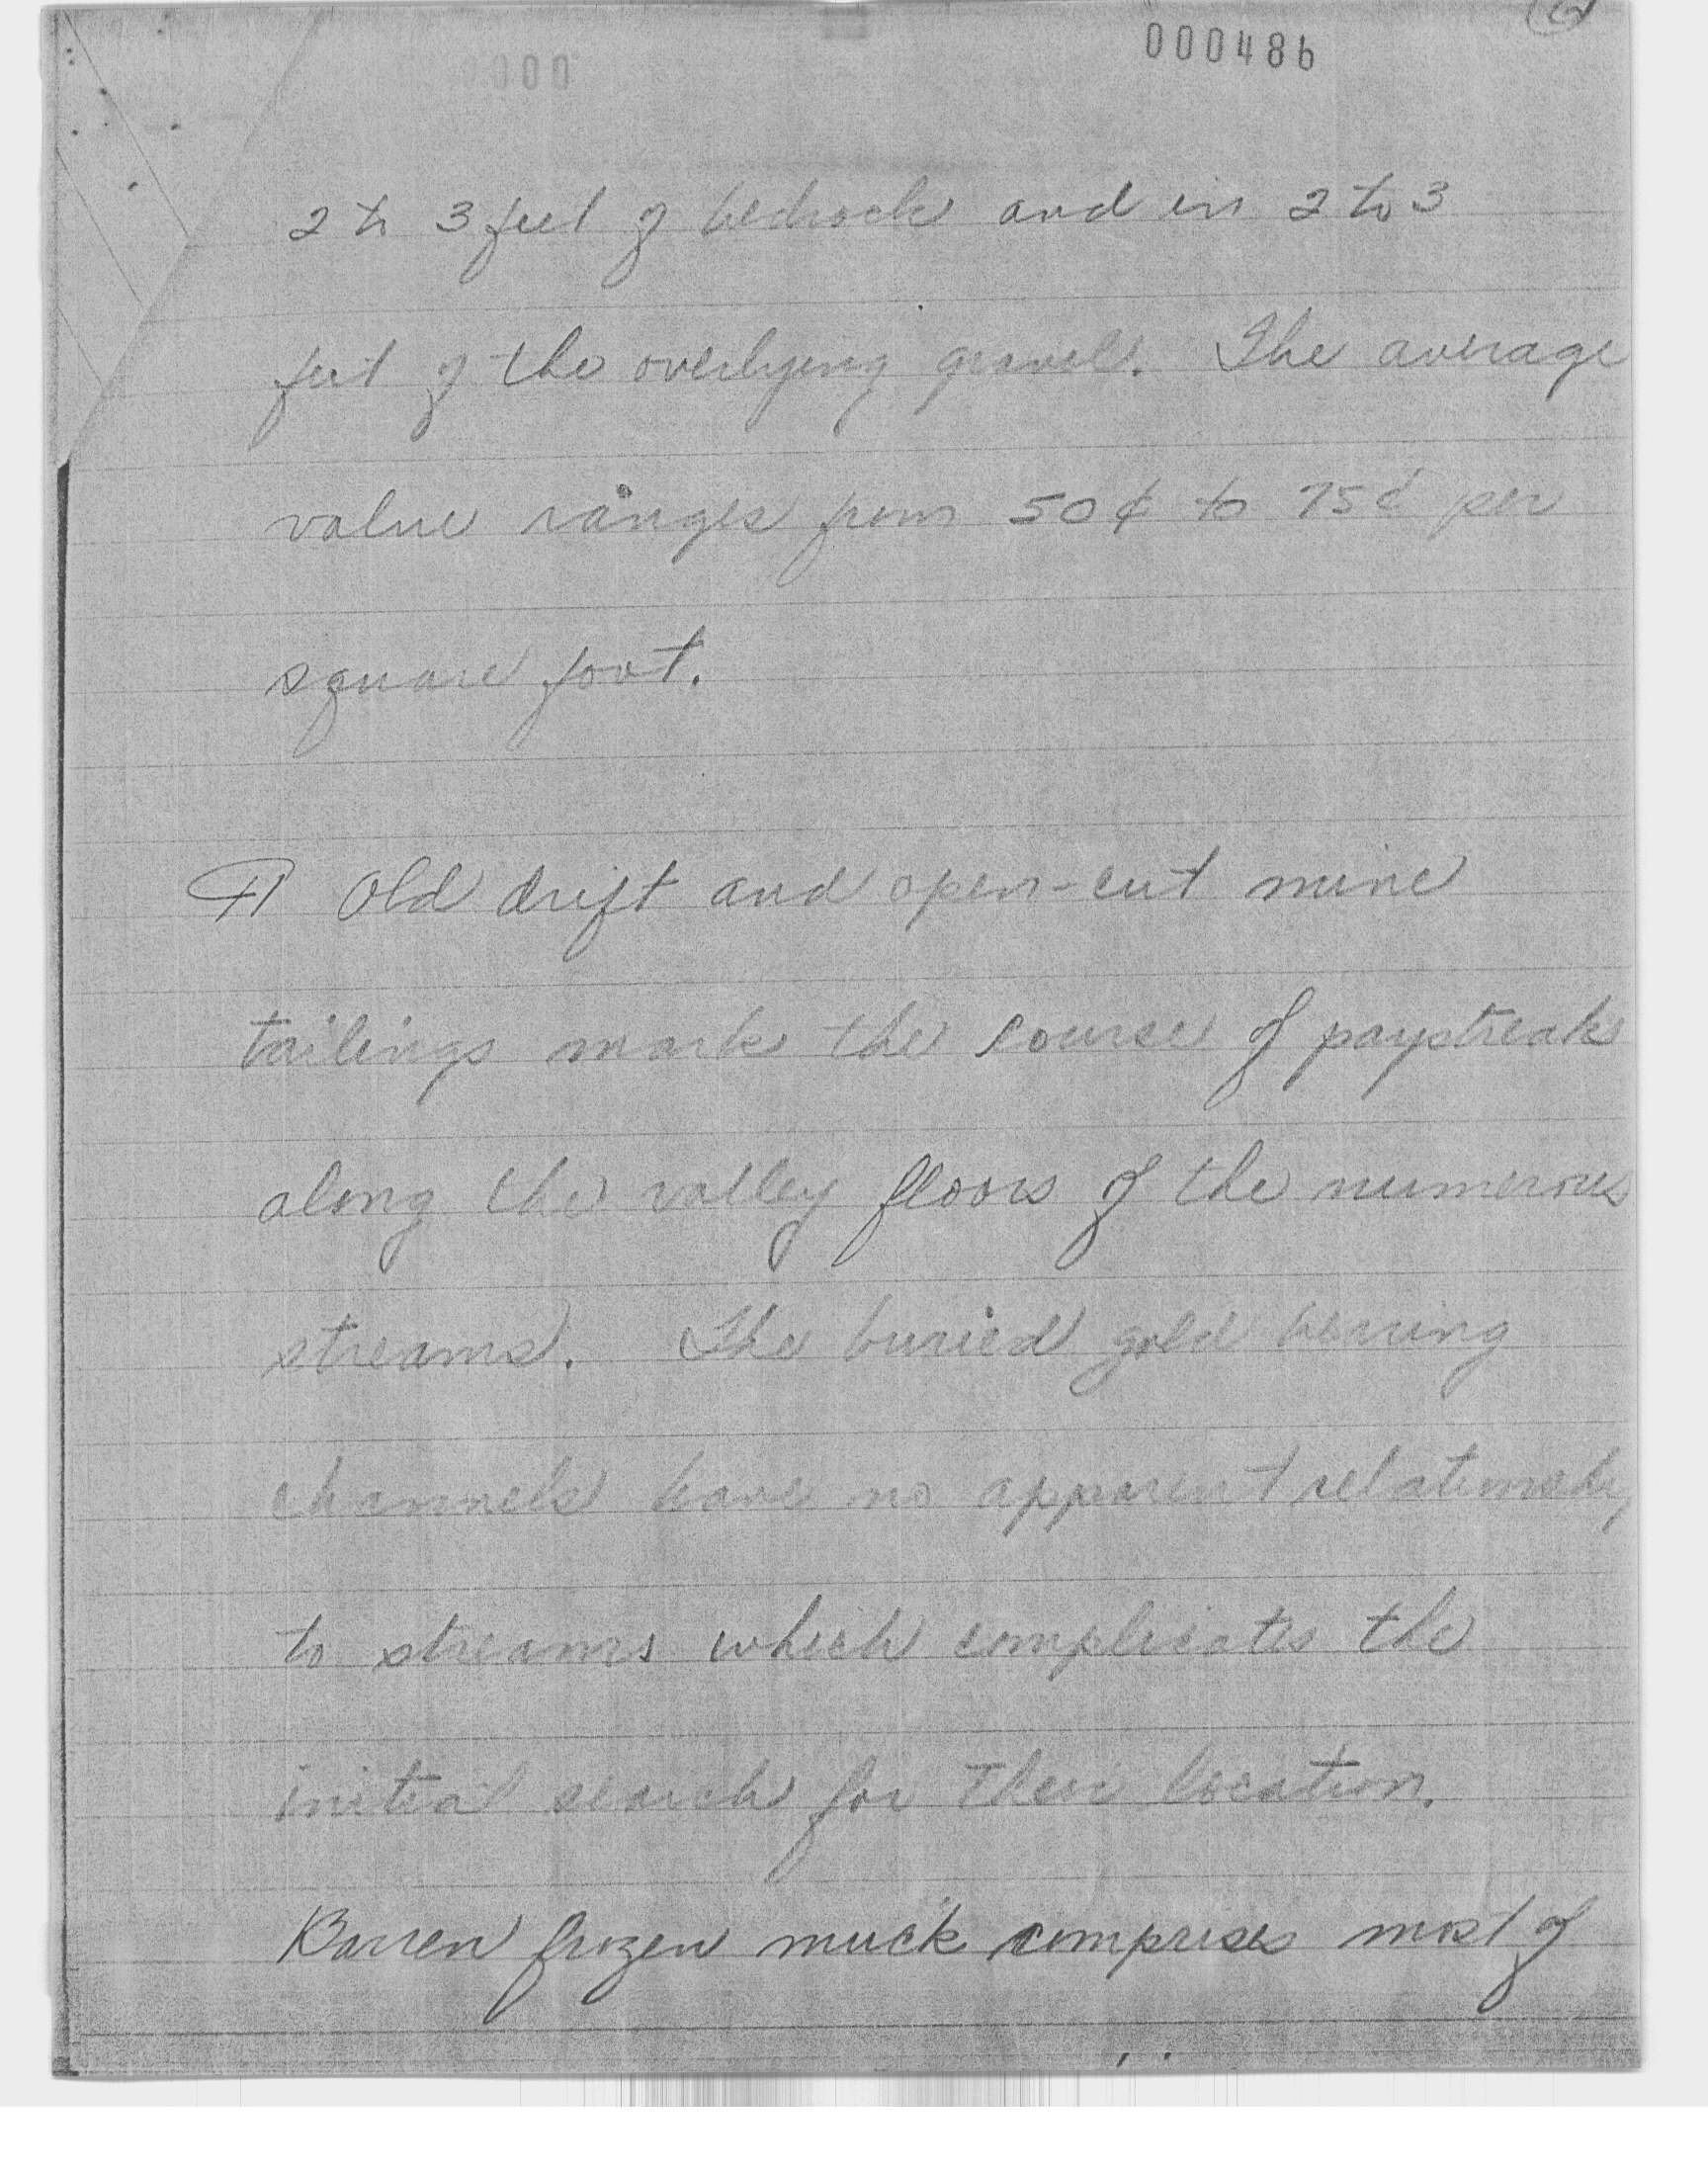 000486
2 to 3 feet of bedrock and in 2 to 3
feet of the overlying gravel. The average
value ranges from 50¢ to 75¢ per
square foot.
¶ Old drift and open-cut mine
tailings mark the course of paystreak
along the valley floors of the numerous
streams. The buried gold bearing
channels have no apparent relationship
to streams which complicates the
initial search for their location.
Barren frozen muck comprises most of